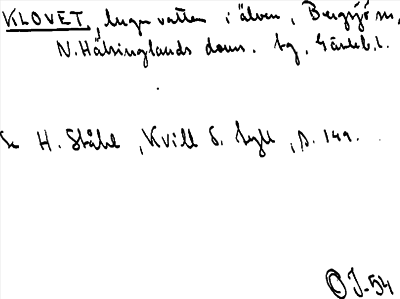 KLOVET, lugnvatten i älven, Bergsjö sn,
N. Hälsinglands doms. tg, Gävleb. l.
Se H. Ståhl, Kvill o. tyll, s. 149.
OJ-54